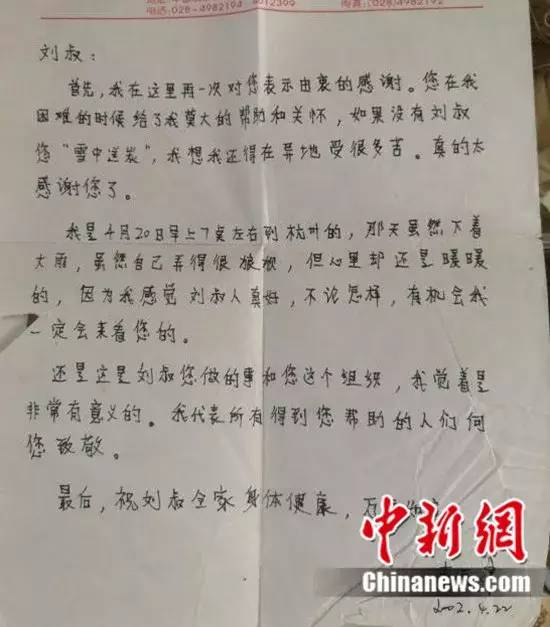 电话:028-4982194
刘叔：
首先，我在这里再一次对您表示由衷的感谢。您在我
困难的时候给了我莫大的帮助和关怀，如果没有刘叔
您“雪中送炭”，我想我还得在异地受很多苦。真的太
感谢您了。
我是4月20日早上7点左右到杭州的，那天虽然下着
大雨，虽然自己弄得很狼狈，但心里却还是暖暖
的，因为我感觉刘叔人真好，不论怎样，有机会我
一定会来看您的。
还是这是刘叔您做的事和您这个组织，我觉着是
非常有意义的。我代表所有得到您帮助的人们向
您致敬。
最后，祝刘叔全家身体健康，万
中新网
Chinanews.com
2002.4.22